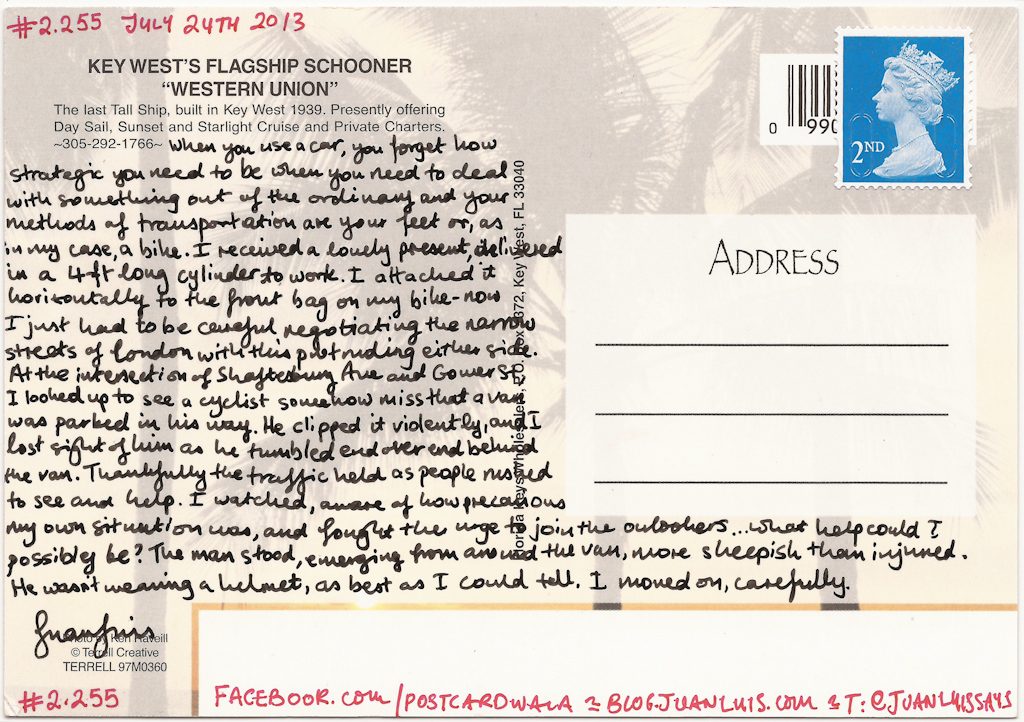 #2.255 JULY 24TH 2013
KEY WEST'S FLAGSHIP SCHOONER
"WESTERN UNION"
The last Tall Ship, built in Key West 1939. Presently offering
Day Sail, Sunset and Starlight Cruise and Private Charters.
~305-292-1766~
When you use a car, you forget how
strategic you need to be when you need to deal
with something out of the ordinary and your
methods of transportation are your feet or, as
in my case, a bike. I received a lovely present, delivered
in a 4ft long cylinder to work. I attached it
horizontally to the front bag on my bike - now
I just had to be careful negotiating the narrow
streets of London with this protruding either side.
At the intersection of Shaftesbury Ave and Gower St
I looked up to see a cyclist somehow miss that a van
was parked in his way. He clipped it violently, and I
lost sight of him as he tumbled end over end behind
the van. Thankfully the traffic held as people rushed
to see and help. I watched, aware of how precarious
my own situation was, and fought the urge to join the onlookers...what help could I
possibly be? The man stood, emerging from around the van, more sheepish than injured.
He wasn't wearing a helmet, as best as I could tell. I moved on, carefully.
Juanluis
Photo by Ken Raveill
© Terrell Creative
TERRELL 97M0360
#2.255
Key West, FL 33040
0 990
2ND
ADDRESS
FACEBOOK.COM/POSTCARDWALA & BLOG.JUANLUIS.COM & T: @JUANLUISSAYS